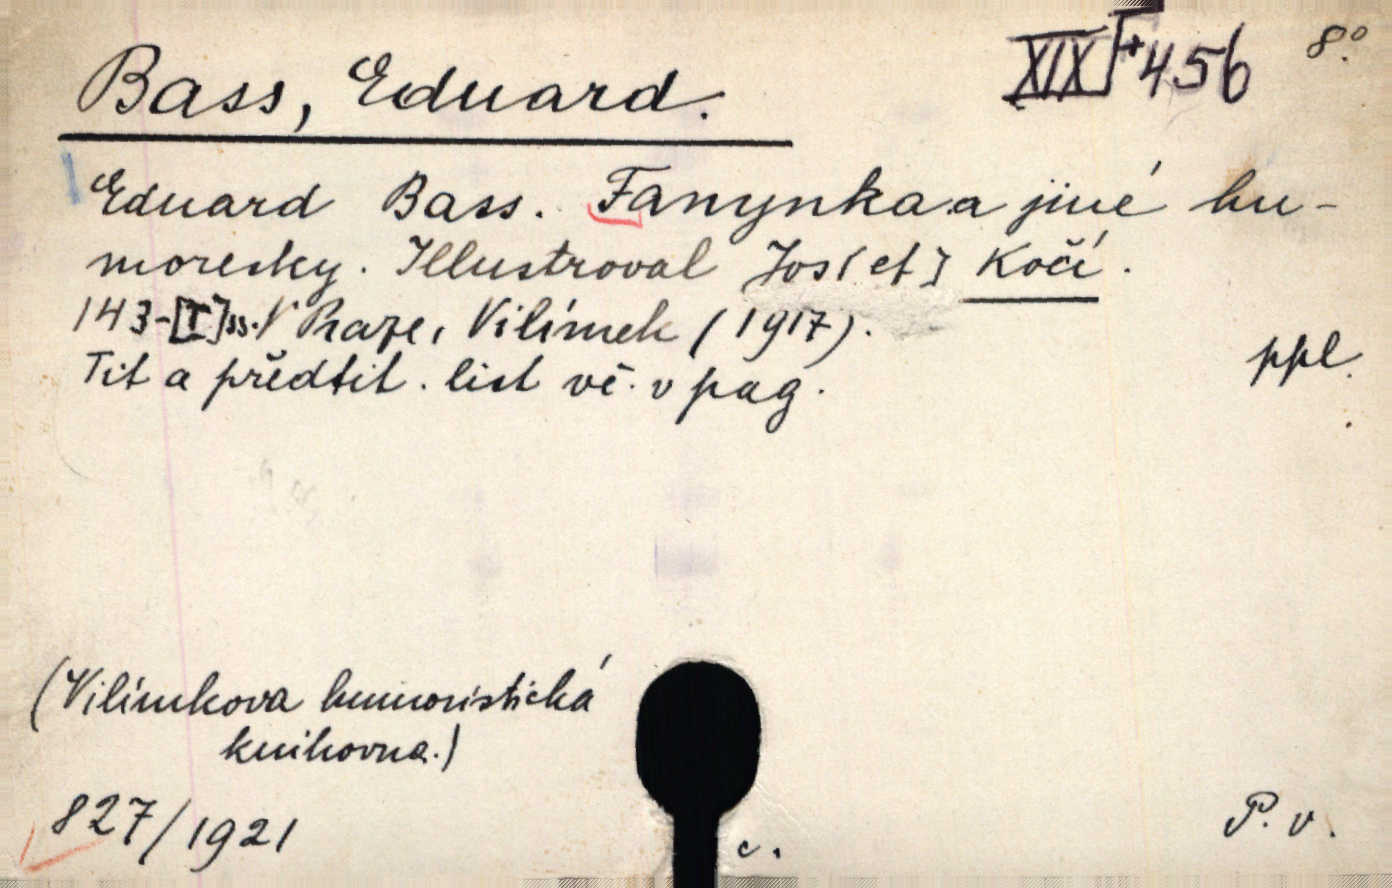 XIX F+ 456 8.°
Bass, Eduard.
Eduard Bass. Fanynka a jiné hu-
moresky. Illustroval Jos[ef] Kočí.
143-[I] ss. V Praze, Vilímek (1917).
ppl.
Tit a předtit. list vč. v pag.
(Vilímkova humoristická
knihovna.)
827/1921
c.
P. v.